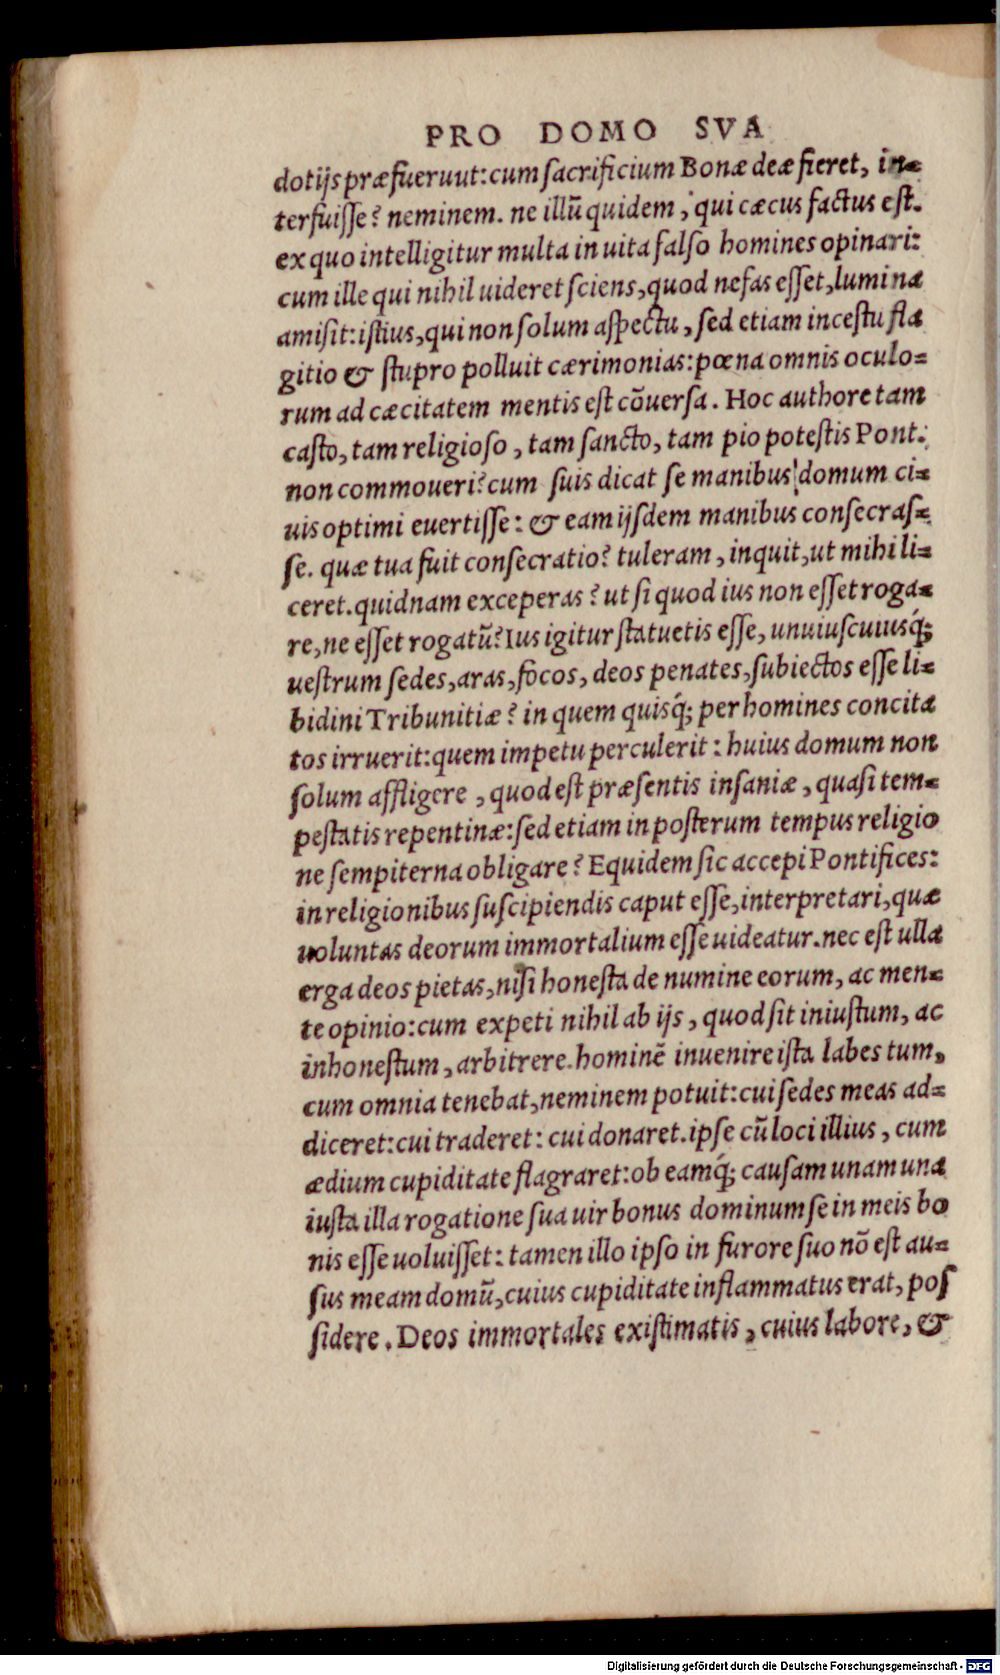 PRO DOMO SVA
dotijs præfueruut: cum ſacrificium Bonæ deæ fieret, in=
terfuiſſe? neminem. ne illũ quidem, qui cæcus factus eſt.
ex quo intelligitur multa in uita falſo homines opinari:
cum ille qui nihil uideret ſciens, quod nefas eſſet, lumina
amiſit: iſtius, qui non ſolum aſpectu, ſed etiam inceſtu fla
gitio & ſtupro polluit cærimonias: pœna omnis oculo=
rum ad cæcitatem mentis eſt cõuerſa. Hoc authore tam
caſto, tam religioſo, tam ſancto, tam pio poteſtis Pont.
non commoueri? cum ſuis dicat ſe manibus domum ci=
uis optimi euertiſſe: & eam ijſdem manibus conſecraſ=
ſe. quæ tua fuit conſecratio? tuleram, inquit, ut mihi li=
ceret. quidnam exceperas? ut ſi quod ius non eſſet roga=
re, ne eſſet rogatũ? Ius igitur ſtatuetis eſſe, unuiuſcuiusq́;
ueſtrum ſedes, aras, focos, deos penates, ſubiectos eſſe li=
bidini Tribunitiæ? in quem quisq́; per homines concita
tos irruerit: quem impetu perculerit: huius domum non
ſolum affligere, quod eſt præſentis inſaniæ, quaſi tem=
peſtatis repentinæ: ſed etiam in poſterum tempus religio
ne ſempiterna obligare? Equidem ſic accepi Pontifices:
in religionibus ſuſcipiendis caput eſſe, interpretari, quæ
uoluntas deorum immortalium eſſe uideatur. nec eſt ulla
erga deos pietas, niſi honeſta de numine eorum, ac men=
te opinio: cum expeti nihil ab ijs, quod ſit iniuſtum, ac
inhoneſtum, arbitrere. hominẽ inuenire iſta labes tum,
cum omnia tenebat, neminem potuit: cui ſedes meas ad=
diceret: cui traderet: cui donaret. ipſe cũ loci illius, cum
ædium cupiditate flagraret: ob eamq́; cauſam unam una
iuſta illa rogatione ſua uir bonus dominum ſe in meis bo
nis eſſe uoluiſſet: tamen illo ipſo in furore ſuo nõ eſt au=
ſus meam domũ, cuius cupiditate inflammatus erat, poſ
ſidere. Deos immortales exiſtimatis, cuius labore, &
Digitalisierung gefördert durch die Deutsche Forschungsgemeinschaft - DFG